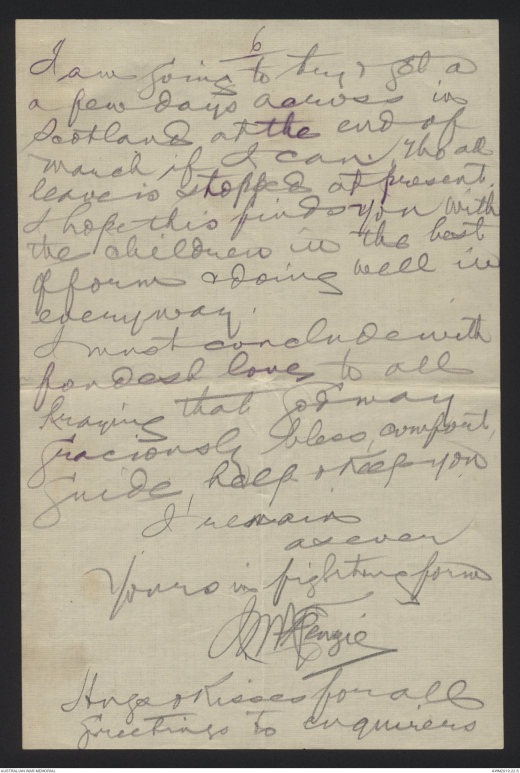 6
I am going to try & get a
a few days across in
Scotland at the end of
march if I can, tho all
leave is stopped at present.
I hope this finds you with
the children in the best
of form & doing well in
everyway.
I must conclude with
fondest love to all
Praying that God may
graciously bless, comfort,
guide, help & keep you
I remain
as ever
Yours in fighting form
McKenzie
Hugs & Kisses for all
Greetings to enquirers
AUSTRALIAN WAR MEMORIAL